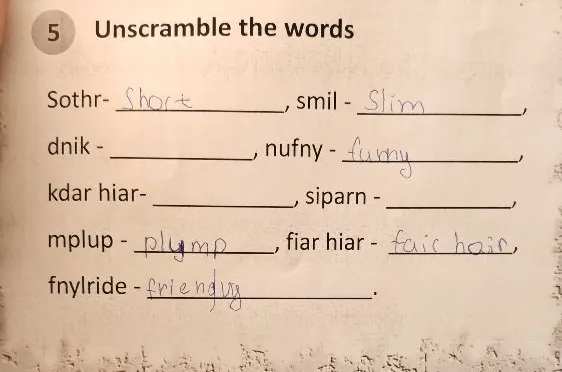 5 Unscramble the words
Sothr- Short, smil - Slim,
dnik - , nufny - funny,
kdar hiar- , siparn - ,
mplup - plymp, fiar hiar - fair hair,
fnylride - friendly.